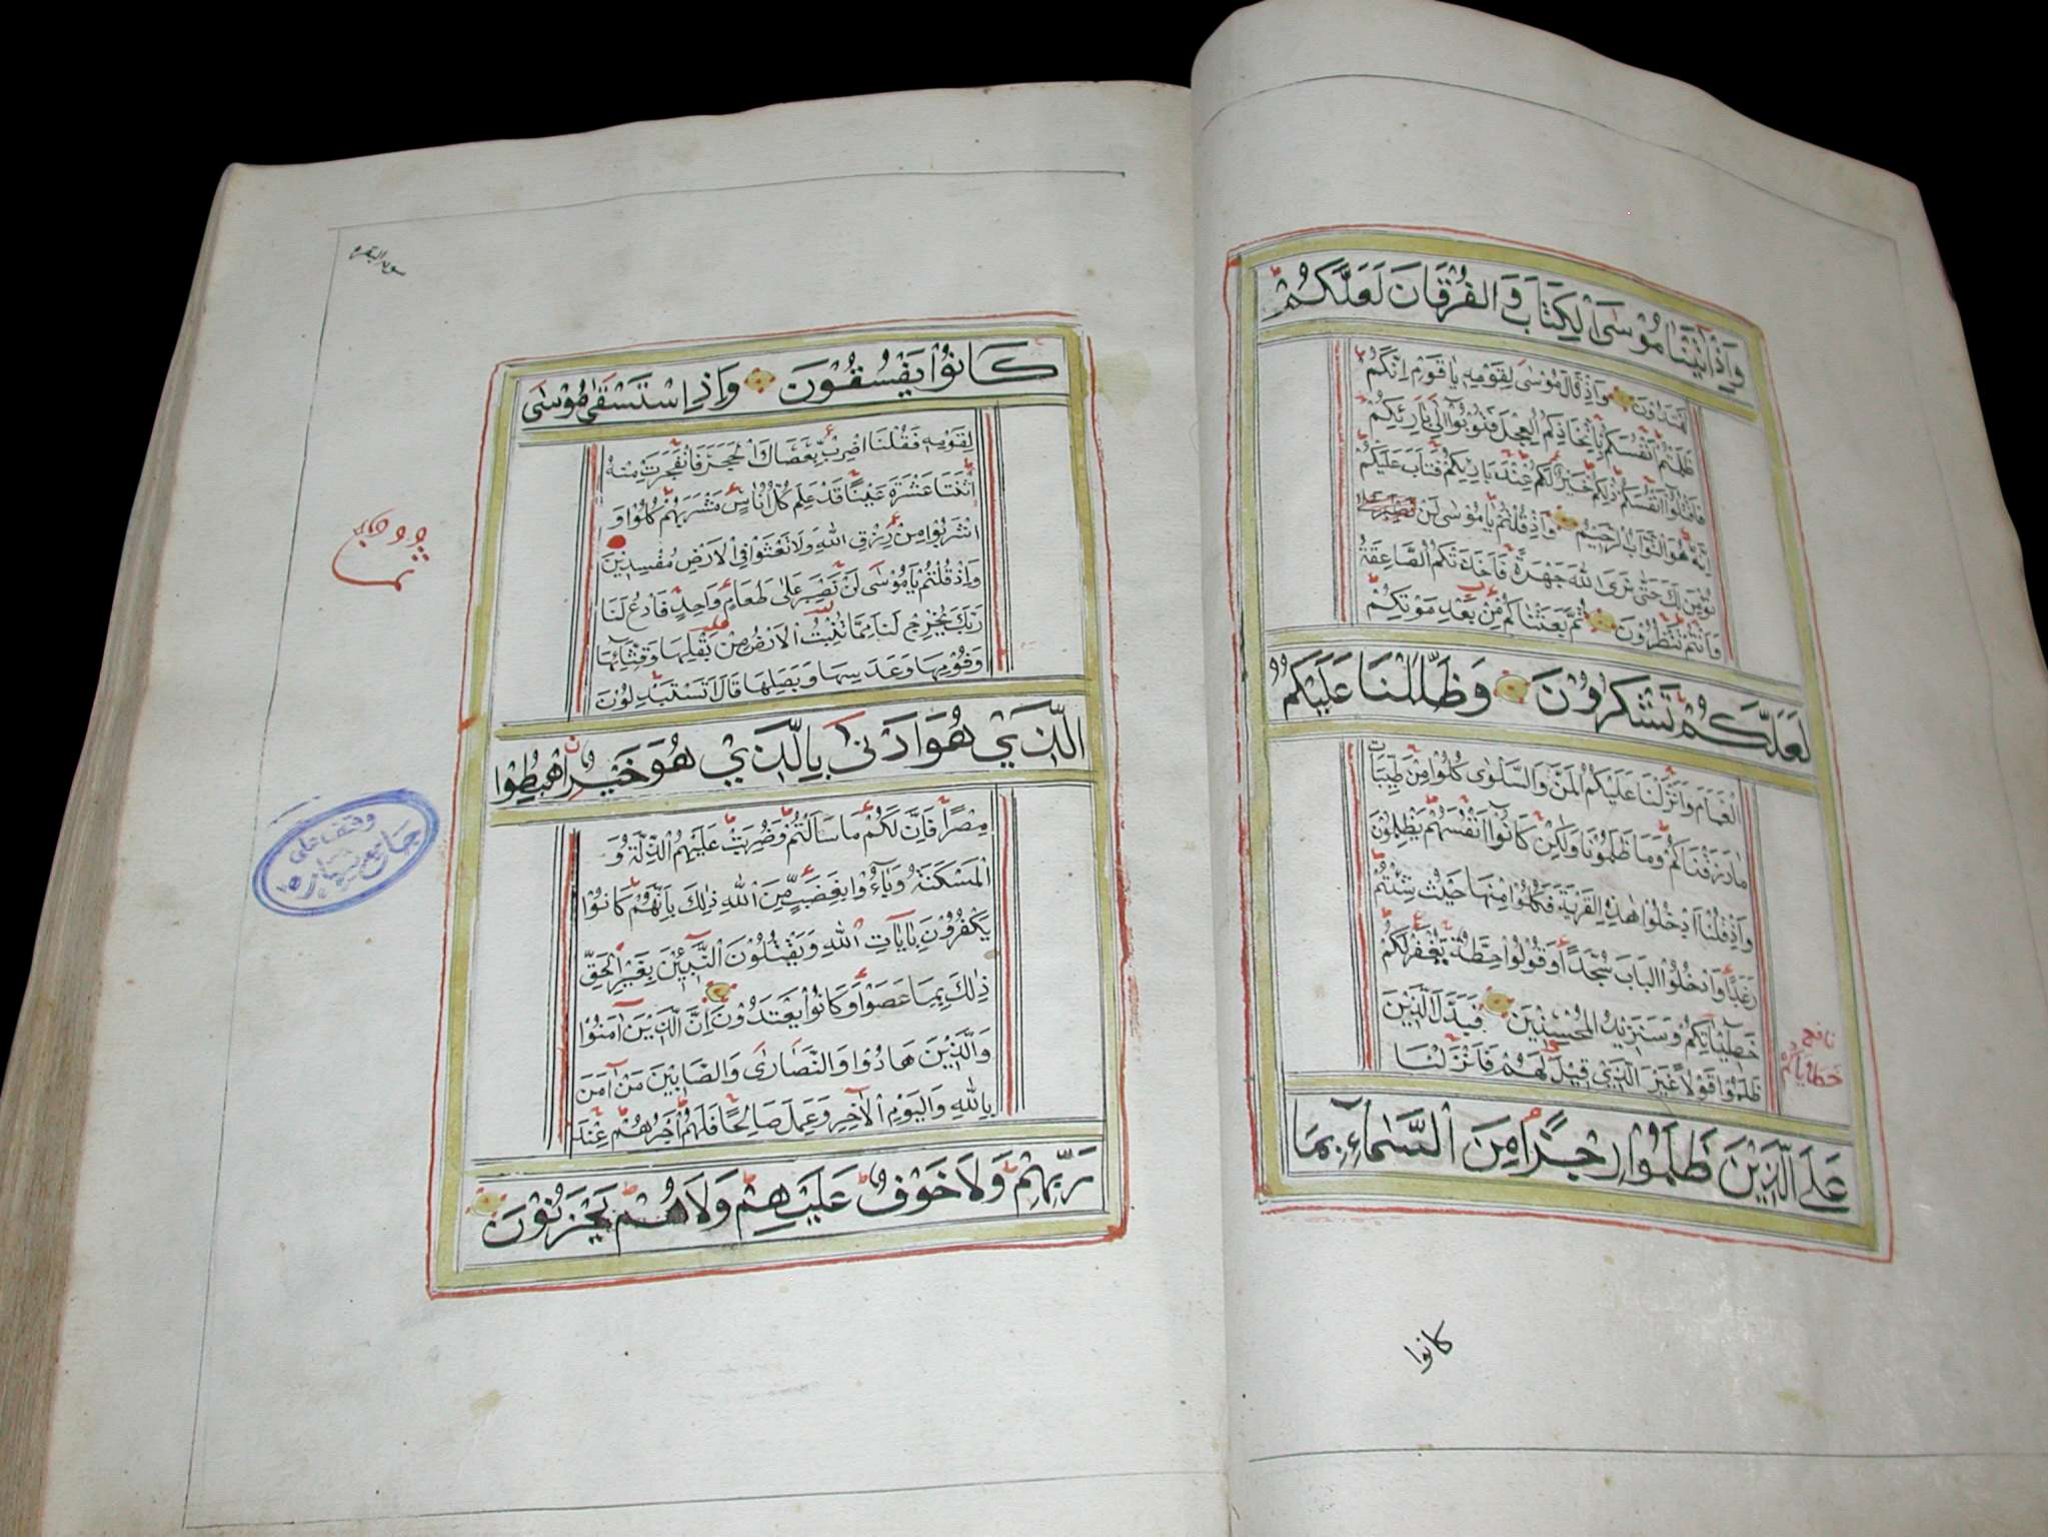 وَإِذْ اٰتَيْنَا مُوْسَى الْكِتَابَ وَالْفُرْقَانَ لَعَلَّكُمْ
تَهْتَدُوْنَ وَاِذْ قَالَ مُوْسٰى لِقَوْمِهٖ يَا قَوْمِ اِنَّكُمْ
ظَلَمْتُمْ اَنْفُسَكُمْ بِاتِّخَاذِكُمُ الْعِجْلَ فَتُوْبُوْآ اِلٰى بَارِئِكُمْ
فَاقْتُلُوْآ اَنْفُسَكُمْ ذٰلِكُمْ خَيْرٌ لَكُمْ عِنْدَ بَارِئِكُمْ فَتَابَ عَلَيْكُمْ
اِنَّهٗ هُوَ التَّوَّابُ الرَّحِيْمُ وَاِذْ قُلْتُمْ يَا مُوْسٰى لَنْ نَصْبِرَ عَلٰى
نُؤْمِنَ لَكَ حَتّٰى نَرَى اللّٰهَ جَهْرَةً فَاَخَذَتْكُمُ الصَّاعِقَةُ
وَاَنْتُمْ تَنْظُرُوْنَ ثُمَّ بَعَثْنَاكُمْ مِنْ بَعْدِ مَوْتِكُمْ
لَعَلَّكُمْ تَشْكُرُوْنَ وَظَلَّلْنَا عَلَيْكُمُ
الْغَمَامَ وَاَنْزَلْنَا عَلَيْكُمُ الْمَنَّ وَالسَّلْوٰى كُلُوْا مِنْ طَيِّبَاتِ
مَا رَزَقْنَاكُمْ وَمَا ظَلَمُوْنَا وَلٰكِنْ كَانُوْآ اَنْفُسَهُمْ يَظْلِمُوْنَ
وَاِذْ قُلْنَا ادْخُلُوْا هٰذِهِ الْقَرْيَةَ فَكُلُوْا مِنْهَا حَيْثُ شِئْتُمْ
رَغَدًا وَادْخُلُوا الْبَابَ سُجَّدًا وَقُوْلُوْا حِطَّةٌ يُغْفَرْ لَكُمْ
خَطِيْئَاتِكُمْ وَسَنَزِيْدُ الْمُحْسِنِيْنَ فَبَدَّلَ الَّذِيْنَ
ظَلَمُوْا قَوْلًا غَيْرَ الَّذِيْ قِيْلَ لَهُمْ فَاَنْزَلْنَا
عَلَى الَّذِيْنَ ظَلَمُوْا رِجْزًا مِنَ السَّمَاءِ بِمَا
نافع
خطاياكم
كانوا
سورة البقرة
كَانُوْا يَفْسُقُوْنَ وَاِذِ اسْتَسْقٰى مُوْسٰى
لِقَوْمِهٖ فَقُلْنَا اضْرِبْ بِعَصَاكَ الْحَجَرَ فَانْفَجَرَتْ مِنْهُ
اثْنَتَا عَشْرَةَ عَيْنًا قَدْ عَلِمَ كُلُّ اُنَاسٍ مَشْرَبَهُمْ كُلُوْا وَ
اشْرَبُوْا مِنْ رِزْقِ اللّٰهِ وَلَا تَعْثَوْا فِي الْاَرْضِ مُفْسِدِيْنَ
وَاِذْ قُلْتُمْ يَا مُوْسٰى لَنْ نَصْبِرَ عَلٰى طَعَامٍ وَاحِدٍ فَادْعُ لَنَا
رَبَّكَ يُخْرِجْ لَنَا مِمَّا تُنْبِتُ الْاَرْضُ مِنْ بَقْلِهَا وَقِثَّآئِهَا
وَفُوْمِهَا وَعَدَسِهَا وَبَصَلِهَا قَالَ اَتَسْتَبْدِلُوْنَ
الَّذِيْ هُوَ اَدْنٰى بِالَّذِيْ هُوَ خَيْرٌ اهْبِطُوْا
مِصْرًا فَاِنَّ لَكُمْ مَا سَاَلْتُمْ وَضُرِبَتْ عَلَيْهِمُ الذِّلَّةُ وَ
الْمَسْكَنَةُ وَبَآءُوْا بِغَضَبٍ مِّنَ اللّٰهِ ذٰلِكَ بِاَنَّهُمْ كَانُوْا
يَكْفُرُوْنَ بِاٰيَاتِ اللّٰهِ وَيَقْتُلُوْنَ النَّبِيّٖنَ بِغَيْرِ الْحَقِّ
ذٰلِكَ بِمَا عَصَوْا وَكَانُوْا يَعْتَدُوْنَ اِنَّ الَّذِيْنَ اٰمَنُوْا
وَالَّذِيْنَ هَادُوْا وَالنَّصَارٰى وَالصَّابِيْنَ مَنْ اٰمَنَ
بِاللّٰهِ وَالْيَوْمِ الْاٰخِرِ وَعَمِلَ صَالِحًا فَلَهُمْ اَجْرُهُمْ عِنْدَ
رَبِّهِمْ وَلَا خَوْفٌ عَلَيْهِمْ وَلَا هُمْ يَحْزَنُوْنَ
وقف على
جامع